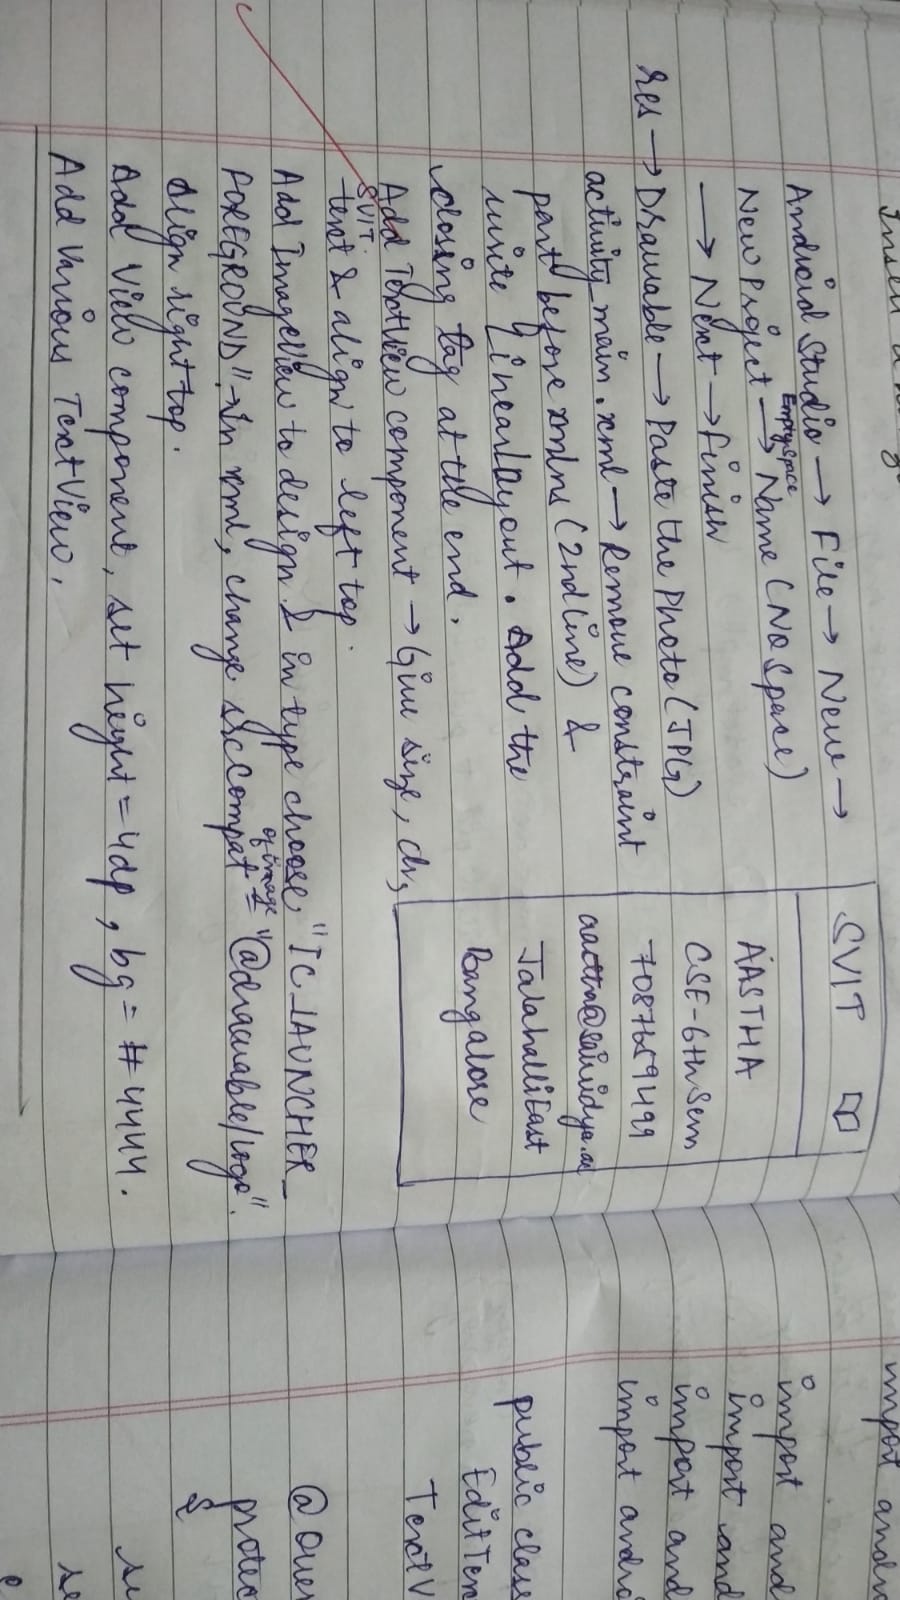 Android Studio → File → New →
New Project → Name (No Space)
Empty Space
→ Next → Finish
res → Drawable → Paste the Photo (JPG)
activity_main.xml → Remove constraint
part before xmlns (2nd line) &
write LinearLayout. Add the
closing tag at the end.
Add TextView component → Give size, clr,
SVIT
text & align to left top.
Add ImageView to design & in type choose "IC_LAUNCHER_
FOREGROUND". → In xml, change srcCompat = "@drawable/logo".
of image
Align right top.
Add View component, set height = 4dp, bg = #4444.
Add Various TextView.
SVIT
AASTHA
CSE-6th Sem
7087659499
aastha@saividya.ac
Jalahalli East
Bangalore
import andro
import and
import and
import and
import andro
public class
EditTex
TextV
@Over
protec
{
se
se